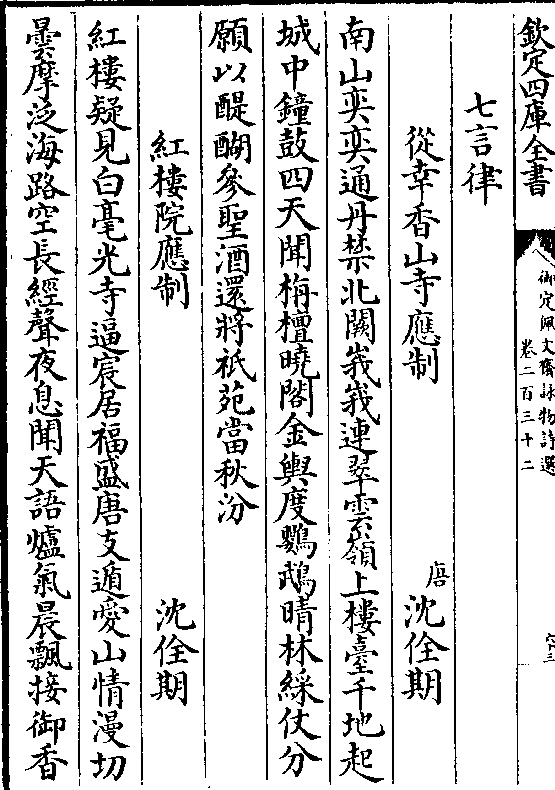 欽定四庫全書
御定佩文齋詠物詩選
卷二百三十二
七言律
從幸香山寺應制
唐 沈佺期
南山奕奕通丹禁北闕峩峩連翠雲嶺上樓臺千地起
城中鐘鼓四天聞栴檀曉閣金輿度鸚鵡晴林綵仗分
願以醍醐參聖酒還將祇苑當秋汾
紅樓院應制
沈佺期
紅樓疑見白毫光寺逼宸居福盛唐支遁愛山情漫切
曇摩泛海路空長經聲夜息聞天語爐氣晨飄接御香